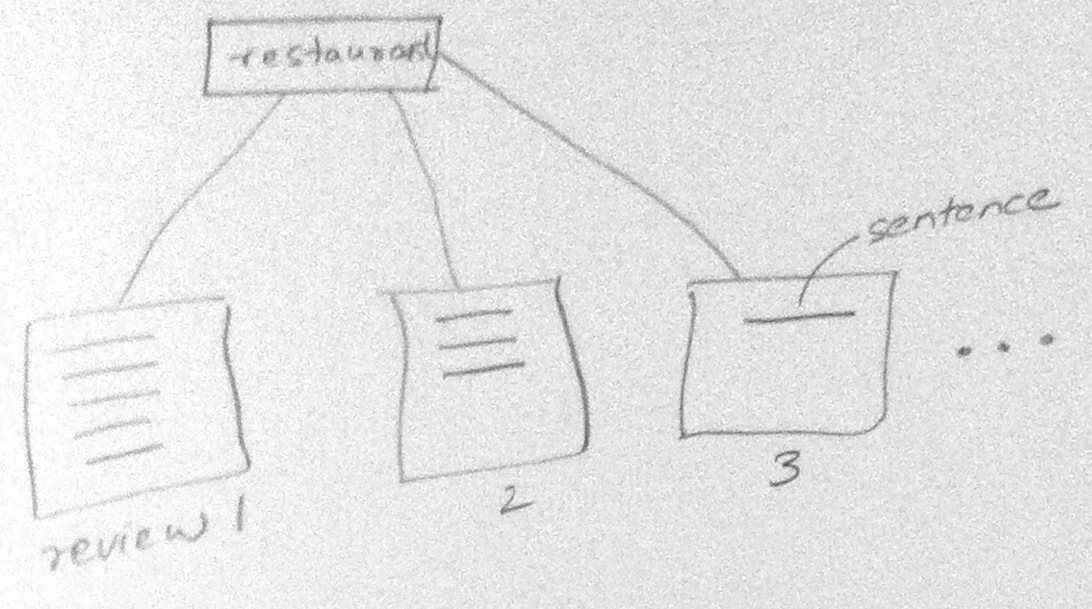 restaurant
sentence
review 1
2
3
...